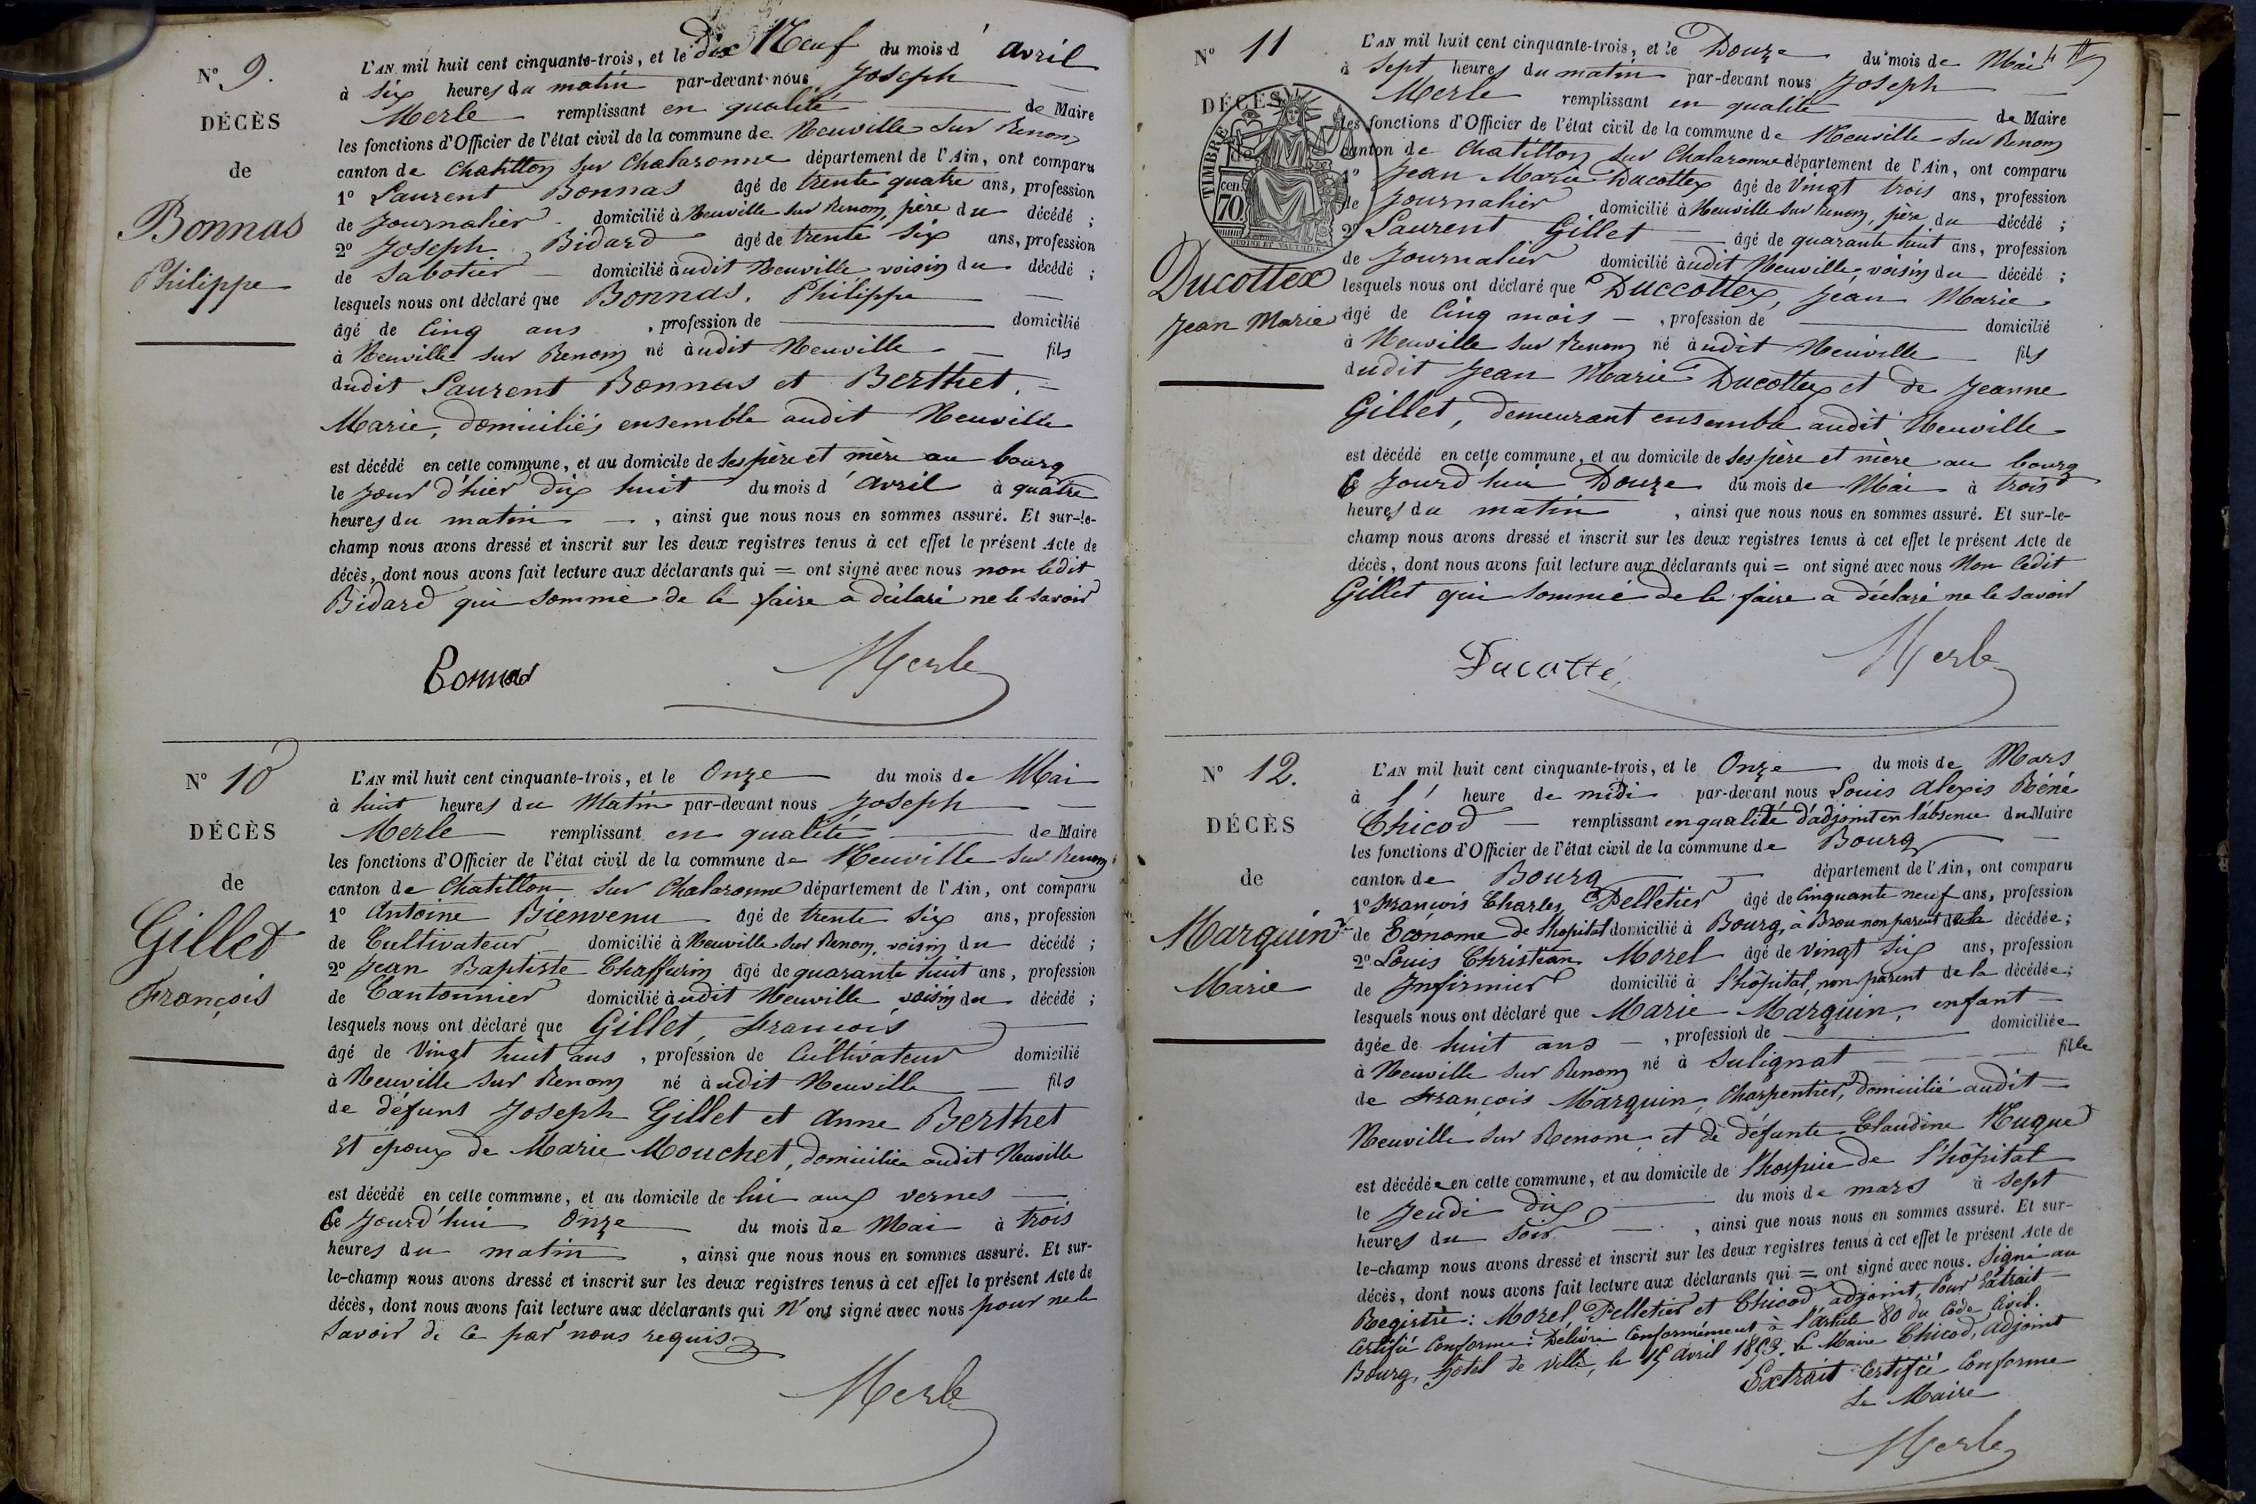 N° 9.
DÉCÈS
de
Bonnas
Philippe
L'AN mil huit cent cinquante-trois, et le Dix Neuf du mois d' avril
à six heures du matin par-devant nous Joseph
Merle remplissant en qualité de Maire
les fonctions d'Officier de l'état civil de la commune de Neuville sur Renom
canton de Chatillon sur Chalaronne département de l'Ain, ont comparu
1° Laurent Bonnas âgé de trente quatre ans, profession
de Journalier domicilié à Neuville sur Renom, père du décédé ;
2° Joseph Bidard âgé de trente six ans, profession
de Sabotier domicilié àudit Neuville voisin du décédé ;
lesquels nous ont déclaré que Bonnas, Philippe
âgé de Cinq ans , profession de domicilié
à Neuville sur Renom né àudit Neuville fils
dudit Laurent Bonnas et Berthet,
Marie, domiciliés ensemble audit Neuville
est décédé en cette commune, et au domicile de ses père et mère au bourg
le jour d'hier dix huit du mois d' avril à quatre
heures du matin , ainsi que nous nous en sommes assuré. Et sur-le-
champ nous avons dressé et inscrit sur les deux registres tenus à cet effet le présent Acte de
décès, dont nous avons fait lecture aux déclarants qui = ont signé avec nous non ledit
Bidard qui sommé de le faire a déclaré ne le savoir
Bonnas Merle
N° 10
DÉCÈS
de
Gillet
François
L'AN mil huit cent cinquante-trois, et le Onze du mois de Mai
à huit heures du Matin par-devant nous Joseph
Merle remplissant en qualité de Maire
les fonctions d'Officier de l'état civil de la commune de Neuville sur Renom
canton de Chatillon sur Chalaronne département de l'Ain, ont comparu
1° Antoine Bienvenu âgé de trente six ans, profession
de Cultivateur domicilié à Neuville sur Renom, voisin du décédé ;
2° Jean Baptiste Chaffurin âgé de quarante huit ans, profession
de Cantonnier domicilié àudit Neuville voisin du décédé ;
lesquels nous ont déclaré que Gillet, François
âgé de Vingt huit ans , profession de Cultivateur domicilié
à Neuville sur Renom né àudit Neuville fils
de défunt Joseph Gillet et Anne Berthet
Et époux de Marie Mouchet, domiciliée audit Neuville
est décédé en cette commune, et au domicile de lui aux vernes
Ce Jourd'hui Onze du mois de Mai à trois
heures du matin , ainsi que nous nous en sommes assuré. Et sur-
le-champ nous avons dressé et inscrit sur les deux registres tenus à cet effet le présent Acte de
décès, dont nous avons fait lecture aux déclarants qui N' ont signé avec nous pour ne le
Savoir de ce par nous requis
Merle
N° 11
DÉCÈS
de
TIMBRE
cen.
70
OUDINE ET VAUTHIER
Ducottex
Jean Marie
L'AN mil huit cent cinquante-trois, et le Douze du mois de Mai
à Sept heures du matin par-devant nous Joseph
Merle remplissant en qualité de Maire
les fonctions d'Officier de l'état civil de la commune de Neuville sur Renom
canton de Chatillon sur Chalaronne département de l'Ain, ont comparu
1° Jean Marie Ducottex âgé de Vingt trois ans, profession
de Journalier domicilié à Neuville sur Renom, père du décédé ;
2° Laurent Gillet âgé de quarante huit ans, profession
de Journalier domicilié àudit Neuville, voisin du décédé ;
lesquels nous ont déclaré que Duccottex, Jean Marie
âgé de Cinq mois , profession de domicilié
à Neuville sur Renom né àudit Neuville fils
dudit Jean Marie Ducottex et de Jeanne
Gillet, demeurant ensemble audit Neuville
est décédé en cette commune, et au domicile de ses père et mère au bourg
Ce Jourd'hui Douze du mois de Mai à trois
heures du matin , ainsi que nous nous en sommes assuré. Et sur-le-
champ nous avons dressé et inscrit sur les deux registres tenus à cet effet le présent Acte de
décès, dont nous avons fait lecture aux déclarants qui = ont signé avec nous Non ledit
Gillet qui sommé de le faire a déclaré ne le savoir
Ducotté Merle
N° 12.
DÉCÈS
de
Marquin
Marie
L'AN mil huit cent cinquante-trois, et le Onze du mois de Mars
à l' heure de midi par-devant nous Louis Alexis Béné
Chicod remplissant en qualité d'adjoint en l'absence du Maire
les fonctions d'Officier de l'état civil de la commune de Bourg
canton de Bourg département de l'Ain, ont comparu
1° François Charles Pelletier âgé de Cinquante neuf ans, profession
de Econome de l'hopital domicilié à Bourg, à Brou non parent de la décédée ;
2° Louis Christian Morel âgé de Vingt six ans, profession
de Infirmier domicilié à l'hôpital, non parent de la décédée ;
lesquels nous ont déclaré que Marie Marquin, enfant
âgée de huit ans , profession de domiciliée
à Neuville sur Renom né à Sulignat fille
de François Marquin, Charpentier, domicilié audit
Neuville sur Renom et de défunte Claudine Hugue
est décédée en cette commune, et au domicile de l'hospice de l'hôpital
le Jeudi dix du mois de mars à Sept
heures du Soir , ainsi que nous nous en sommes assuré. Et sur-
le-champ nous avons dressé et inscrit sur les deux registres tenus à cet effet le présent Acte de
décès, dont nous avons fait lecture aux déclarants qui = ont signé avec nous. Signé au
Registre : Morel, Pelletier et Chicod, adjoint, Pour Extrait
Certifié Conforme : Délivré Conformément à l'article 80 du Code Civil.
Bourg, hotel de ville, le 15 Avril 1853. Le Maire Chicod, Adjoint
Extrait Certifié Conforme
Le Maire
Merle